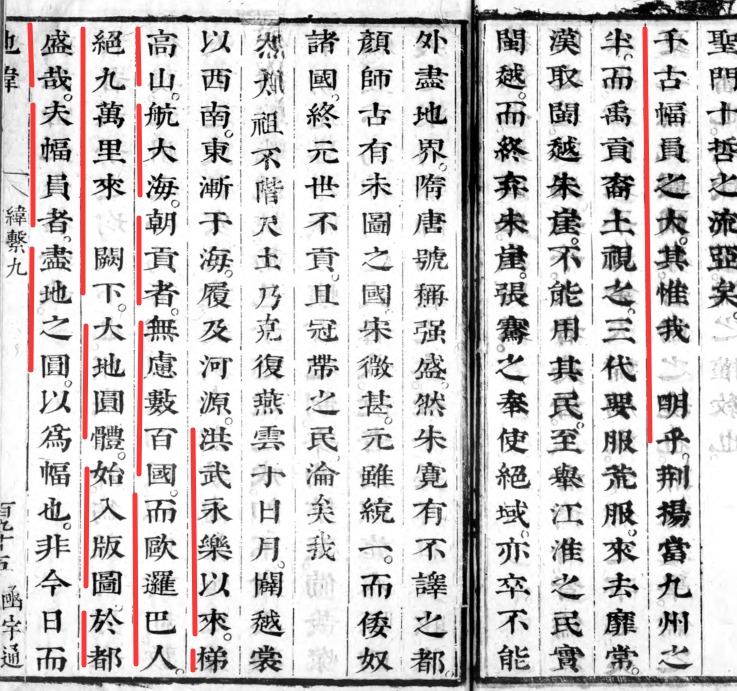 聖門十哲之流亞矣。
千古幅員之大。其惟我 明乎。荆揚當九州之
半。而禹貢裔土視之。三代要服荒服。來去靡常。
漢取閩越朱崖。不能用其民。至舉江淮之民實
閩越。而終弃朱崖。張騫之奉使絕域。亦卒不能
外盡地界。隋唐號稱强盛。然朱寛有不譯之都。
顏師古有未圖之國。宋微甚。元雖統一。而倭奴
諸國。終元世不貢。且冠帶之民淪矣。我
祖不階尺土乃克復燕雲于日月。闢越裳
以西南。東漸于海。履及河源。洪武永樂以來。梯
高山。航大海。朝貢者。無慮數百國。而歐邏巴人。
絕九萬里來 闕下。大地圓體。始入版圖。於都
盛哉。夫幅員者。盡地之圓。以爲幅也。非今日而
地緯
緯繫九
百九十五
函宇通